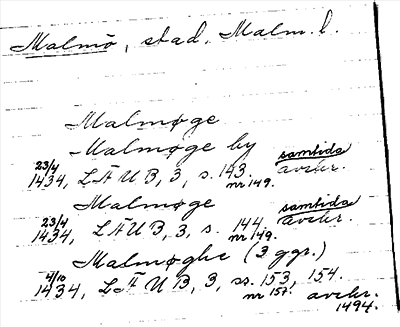 Malmö, stad. Malm. l.
Malmøge
Malmøge by
23/4 1434, LÄUB, 3, s. 143. nr 149. samtida avskr.
Malmøge
23/4 1434, LÄUB, 3, s. 144. nr 149. samtida avskr.
Malmøghe (3 ggr.)
4/10 1434, LÄUB, 3, ss. 153, 154. nr 157. avskr. 1494.